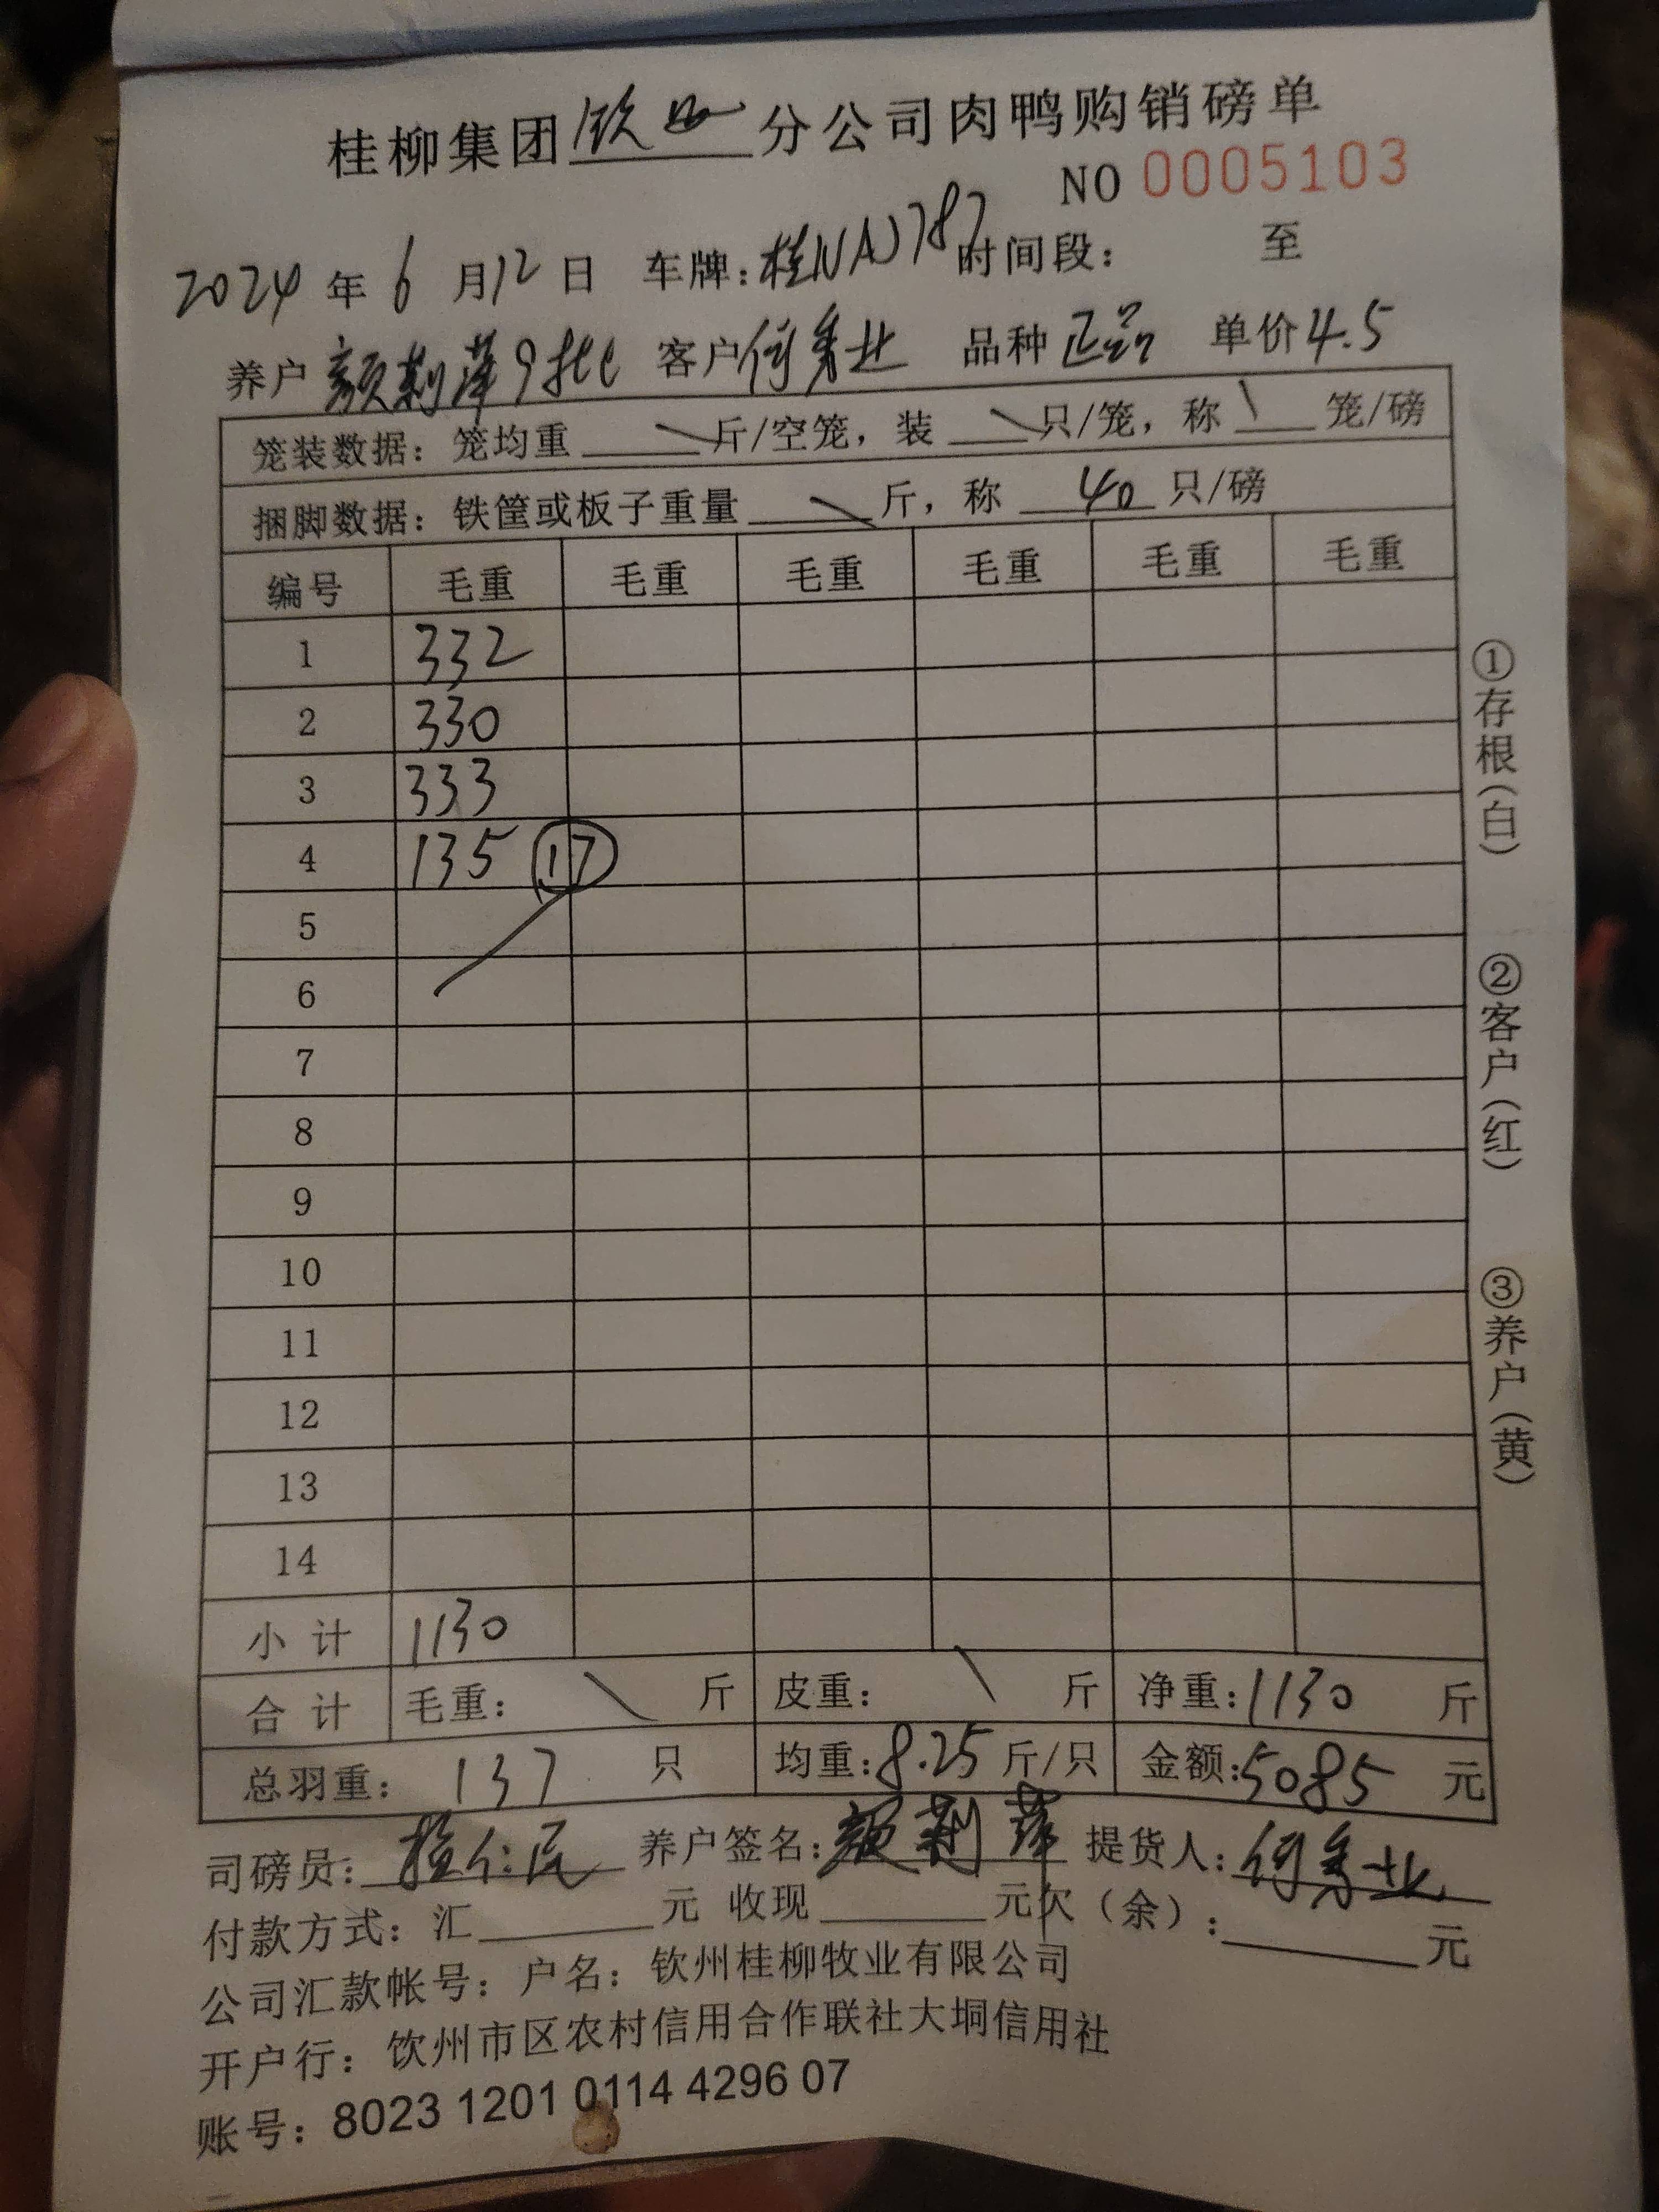 桂柳集团钦西分公司肉鸭购销磅单
NO 0005103
2024年6月12日 车牌:桂NAJ787 时间段: 至
养户 颜荆萍9批 客户 何 业 品种 正品 单价4.5
笼装数据: 笼均重 斤/空笼, 装 只/笼, 称 笼/磅
捆脚数据: 铁筐或板子重量 斤, 称 40 只/磅
编号 毛重 毛重 毛重 毛重 毛重 毛重
1 332
2 330
3 333
4 135 17
5
6
7
8
9
10
11
12
13
14
小计 1130
合计 毛重: 斤 皮重: 斤 净重:1130 斤
总羽重: 137 只 均重:8.25斤/只 金额:5085 元
司磅员: 仁民 养户签名:颜荆萍 提货人:何 业
付款方式: 汇 元 收现 元欠(余): 元
公司汇款帐号: 户名: 钦州桂柳牧业有限公司
开户行: 钦州市区农村信用合作联社大垌信用社
账号: 8023 1201 0114 4296 07
①存根(白)
②客户(红)
③养户(黄)